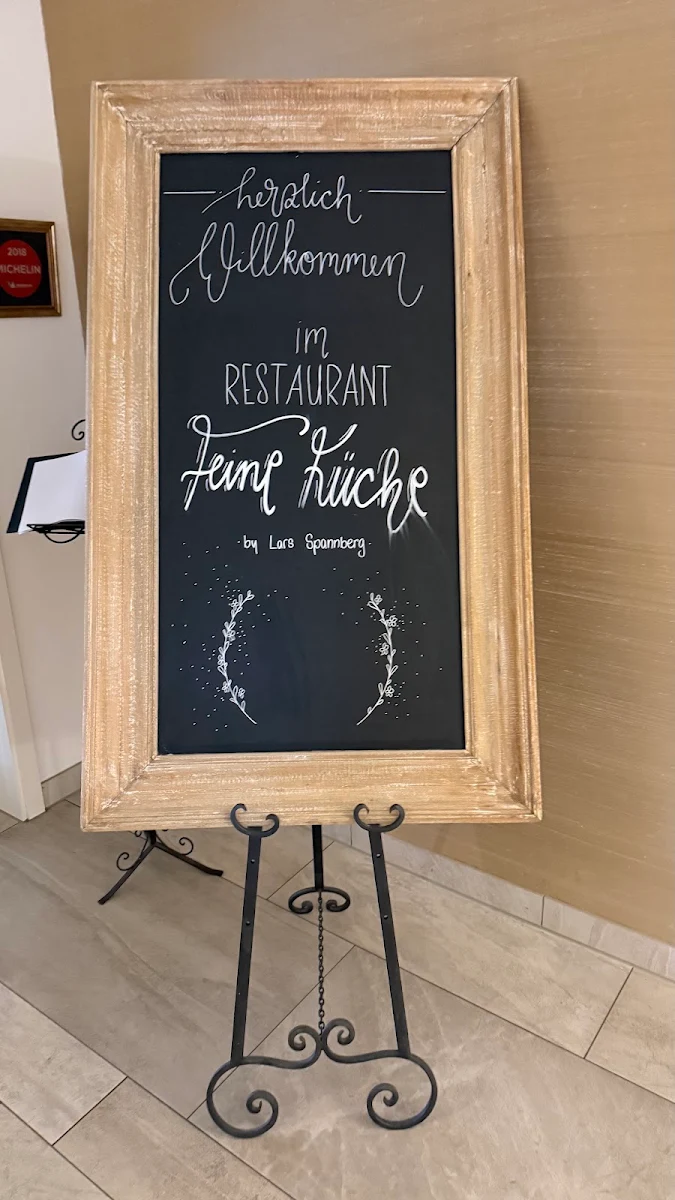 herzlich
Willkommen
im
RESTAURANT
Feine Küche
· by Lars Spannberg ·
2018
MICHELIN